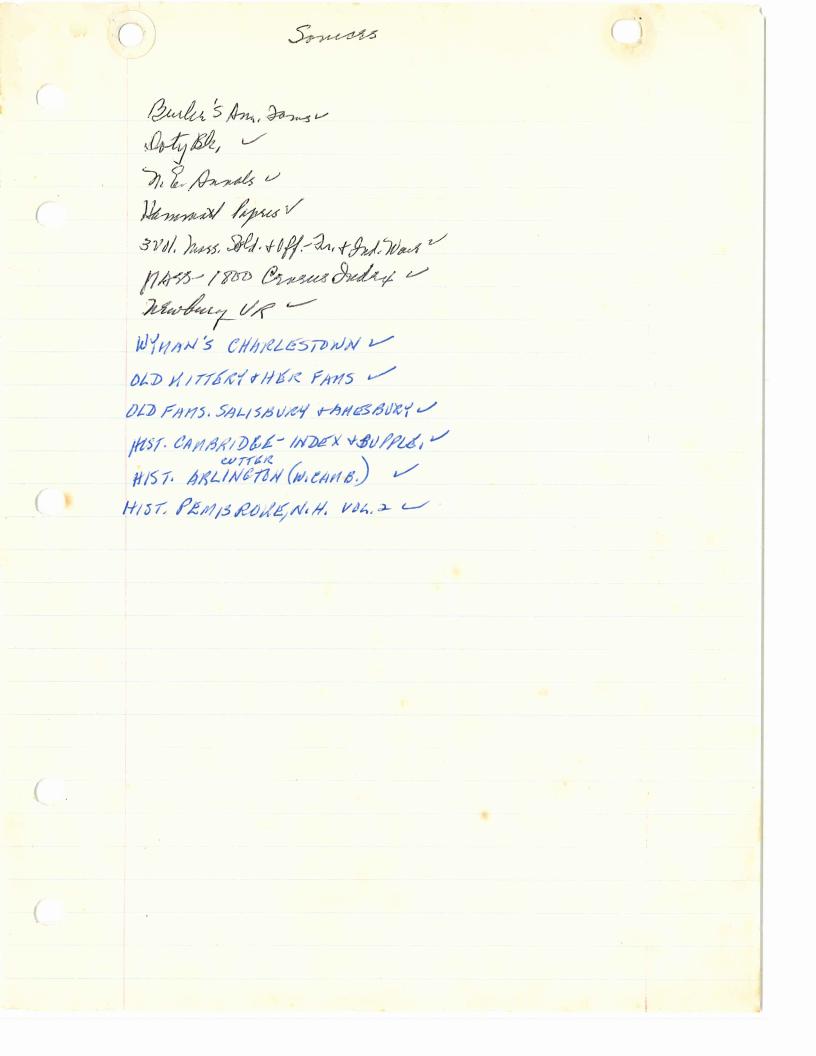 Somers
Burke's Am. Fams ✓
Doty Bk. ✓
N.E. Annals ✓
Hammatt Papers ✓
3 Vol. Mass. Sold. & Off. - Fr. & Ind. Wars ✓
MASS - 1800 Census Index ✓
Newbury VR ✓
WYMAN'S CHARLESTOWN ✓
OLD KITTERY & HER FAMS ✓
OLD FAMS. SALISBURY & AMESBURY ✓
HIST. CAMBRIDGE - INDEX & SUPPLE. ✓
CUTTER
HIST. ARLINGTON (W. CAMB.) ✓
HIST. PEMBROKE, N.H. VOL. 2 ✓